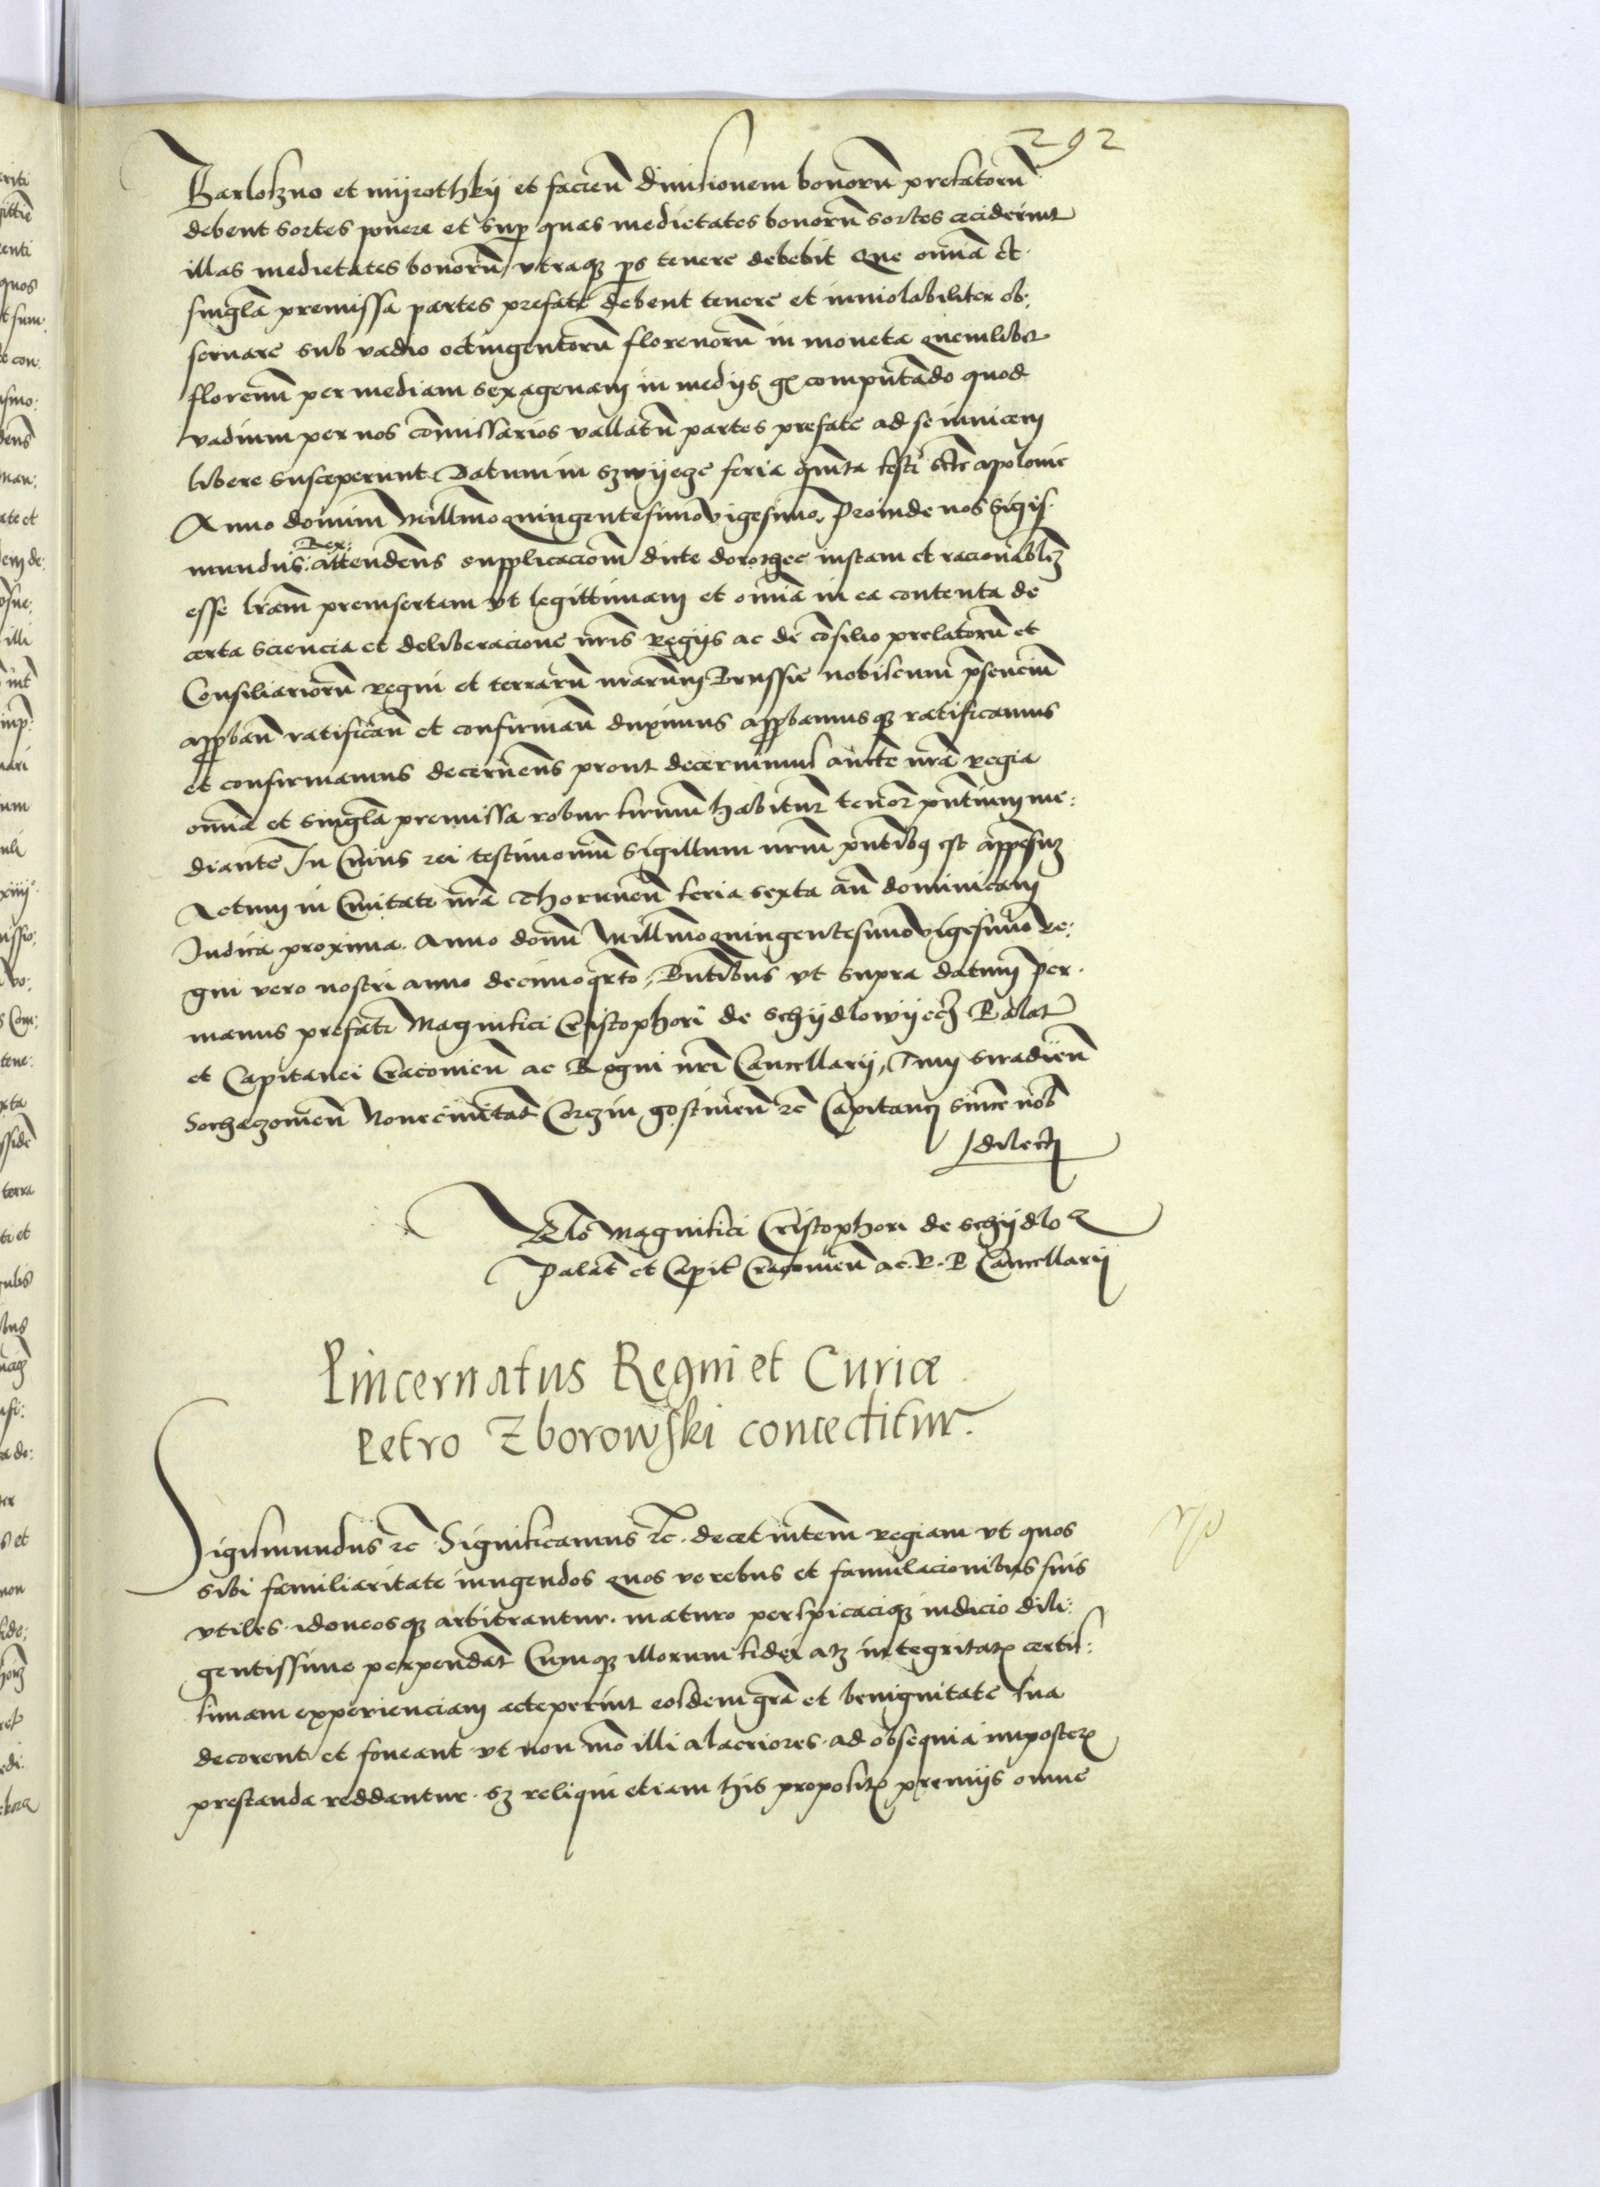 292
Barlozno et mijrothkij et facien divisionem bonorum prefatorum
debent sortes ponere et sup quas medietates bonorum sortes ceciderint
illas medietates bonorum utraque ps tenere debebit Que omnia et
singla premissa partes prefate debent tenere et inviolabiliter ob:
servare sub vadio octingentorum florenorum in moneta quemlibet
florenum per mediam sexagenam in medijs gr computando quod
vadium per nos comissarios vallatum partes prefate ad se invicem
libere susceperunt Datum in szwyecze feria quinta festi scte apolonie
Anno domini Millmoquingentesimovigesimo. Proinde nos Sigis
mundus Rex attendens supplicacionem dicte dorothee iustam et racionabilem
esse lram preinsertam ut legittimam et omnia in ea contenta de
certa sciencia et deliberacione nris Regijs ac de consilio prelatorum et
Consiliariorum regni et terrarum nrarum Prussie nobiscum psencium
approban ratifican et confirman duximus approbamusque ratificamus
et confirmamus decernens prout decernimus aucte nra regia
omnia et singla premissa robur firmum habitur tenor pntium me:
diante In Cuius rei testimonium sigillum nrm pntibus est appensum
Actum in Civitate nra Thorunen feria sexta ante dominicam
Iudica proxima. Anno domini Millmoquingentesimovigesimo Re:
gni vero nostri anno decimoqrto, Pntibus ut supra datum per
manus prefati Magnifici Cristophori de schydlowyecz Palat
et Capitanei Cracovien ac Regni nri Cancellarij, Tum siradien
Sochaczovien Novecivitat Corczin gostinen zc Capitanei sincere nob
dilecti
Relo Magnifici Cristophori de schijdlo
Palat et Capit Cracovien ac R. P Cancellarij
Pincernatus Regni et Curiæ
Petro Zborowski conceditur.
Sigismundus zc Significamus zc. decet mentem regiam ut quos
sibi familiaritate iungendos quos ve rebus et famulacionibus suis
utiles idoneosque arbitrantur. maturo perspicacique iudicio dili:
gentissime perpendat Cumque illorum fidei atque integritatis certis:
simam experienciam acceperint eosdem gra et benignitate sua
decorent et foveant ut non mo illi alacriores ad obsequia imposterum
prestanda reddantur. sz reliqui etiam his propositis premijs omne